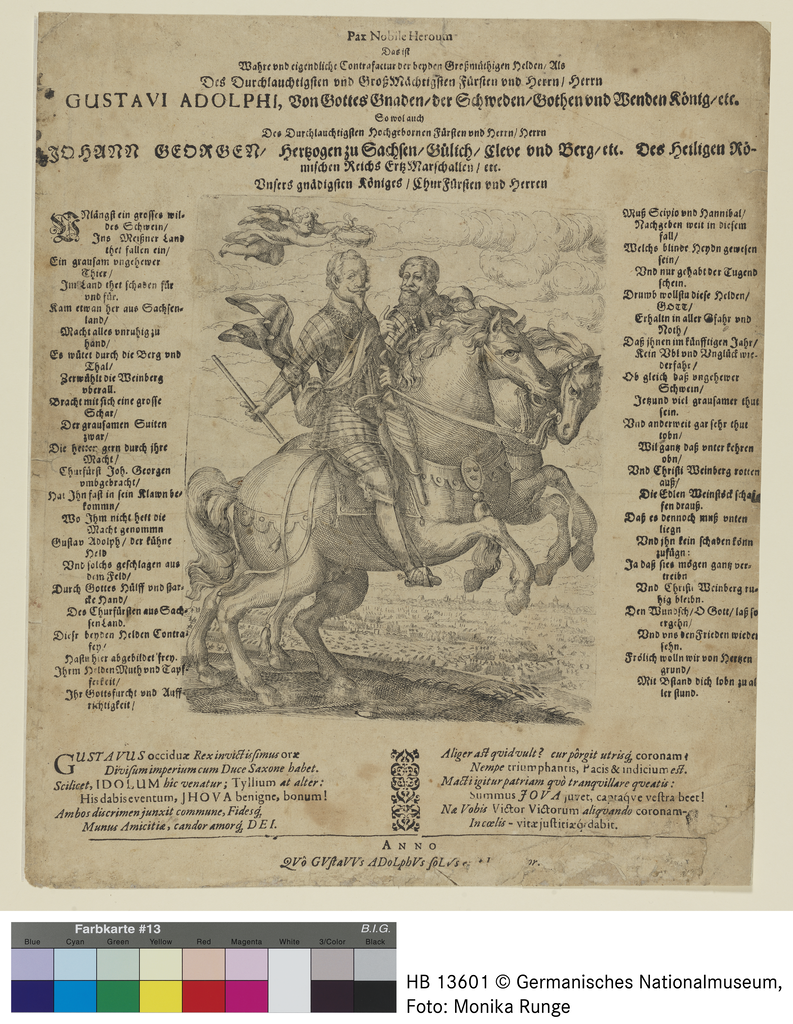 Par Nobile Heroum
Das ist
Wahre vnd eigendliche Contrafactur der beyden Großmüthigen Helden/ Als
Des Durchlauchtigsten vnd GroßMächtigsten Fürsten vnd Herrn/ Herrn
GUSTAVI ADOLPHI, Von Gottes Gnaden/der Schweden/Gothen vnd Wenden König/etc.
So wol auch
Des Durchlauchtigsten Hochgebornen Fürsten vnd Herrn/ Herrn
JOHANN GEORGEN/ Hertzogen zu Sachsen/Gülich/ Cleve vnd Berg/etc. Des Heiligen Rö-
mischen Reichs ErtzMarschallen/ etc.
Vnsers gnädigsten Königes / ChurFürsten vnd Herren
VNlängst ein grosses wil-
des Schwein/
Ins Meißner Land
thet fallen ein/
Ein grausam vngehewer
Thier/
Im Land thet schaden für
vnd für.
Kam etwan her aus Sachsen-
land/
Macht alles vnruhig zu
hand/
Es wütet durch die Berg vnd
Thal/
Zerwühlt die Weinberg
vberall.
Bracht mit sich eine grosse
Schar/
Der grausamen Suiten
zwar/
Die hetten gern durch ihre
Macht/
Churfürst Joh. Georgen
vmbgebracht/
Hat Ihn fast in sein Klawn be-
kommn/
Wo Ihm nicht hett die
Macht genommn
Gustav Adolph/ der kühne
Held
Vnd solchs geschlagen aus
dem Feld/
Durch Gottes Hülff vnd star-
cke Hand/
Des Churfürsten aus Sach-
sen Land.
Dieser beyden Helden Contra-
fey/
Hastu hier abgebildet frey.
Ihrm Helden Muth vnd Tapf-
ferkeit/
Ihr Gottsfurcht vnd Auff-
richtigkeit/
Muß Scipio vnd Hannibal/
Nachgeben weit in diesem
fall/
Welchs blinde Heydn gewesen
sein/
Vnd nur gehabt der Tugend
schein.
Drumb wollstu diese Helden/
GOTT/
Erhaltn in aller Gfahr vnd
Noth/
Daß ihnen im künfftigen Jahr/
Kein Vbl vnd Vnglück wie-
derfahr/
Ob gleich daß vngehewer
Schwein/
Jetzund viel grausamer thut
sein.
Vnd anderweit gar sehr thut
tobn/
Wil gantz daß vnter kehren
obn/
Vnd Christi Weinberg rotten
auß/
Die Edlen Weinstöck schaf-
fen drauß.
Daß es dennoch muß vnten
liegn
Vnd ihn kein schaden könn
zufügn:
Ja daß sies mögen gantz ver-
treibn
Vnd Christi Weinberg ru-
hig bleibn.
Den Wundsch/O Gott/ laß so
ergehn/
Vnd vns den Frieden wieder
sehn.
Frölich wolln wir von Hertzen
grund/
Mit Bstand dich lobn zu al-
ler stund.
GUSTAVUS occiduæ Rex invictissimus oræ
Divisum imperium cum Duce Saxone habet.
Scilicet, IDOLUM hic venatur; Tyllium at alter:
His dabis eventum, JHOVA benigne, bonum!
Ambos discrimen junxit commune, Fidesq́,
Munus Amicitiæ, candor amorq́, DEI.
Aliger ast qvid vult? cur porgit utrisq́, coronam?
Nempe triumphantis, Pacis & indicium est.
Macti igitur patriam qvò tranquillare queatis:
Summus JOVA juvet, captaqve vestra beet!
Næ Vobis Victor Victorum aliqvando coronam
In cœlis - vitæ justitiæq́; dabit.
ANNO
QVò GVstaVVs ADoLphVs
Farbkarte #13
B.I.G.
Blue Cyan Green Yellow Red Magenta White 3/Color Black
HB 13601 © Germanisches Nationalmuseum,
Foto: Monika Runge